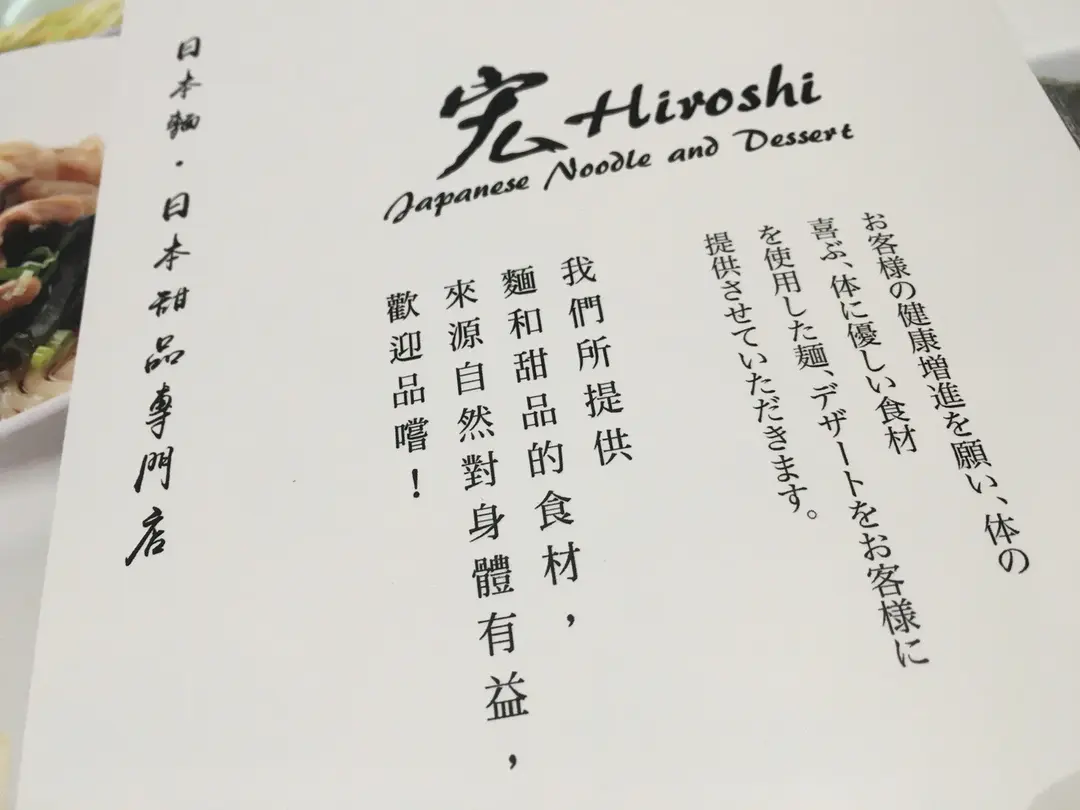 宏 Hiroshi
Japanese Noodle and Dessert
お客様の健康増進を願い、体の
喜ぶ、体に優しい食材
を使用した麺、デザートをお客様に
提供させていただきます。
我們所提供
麵和甜品的食材，
來源自然對身體有益，
歡迎品嚐！
日本麵・日本甜品專門店